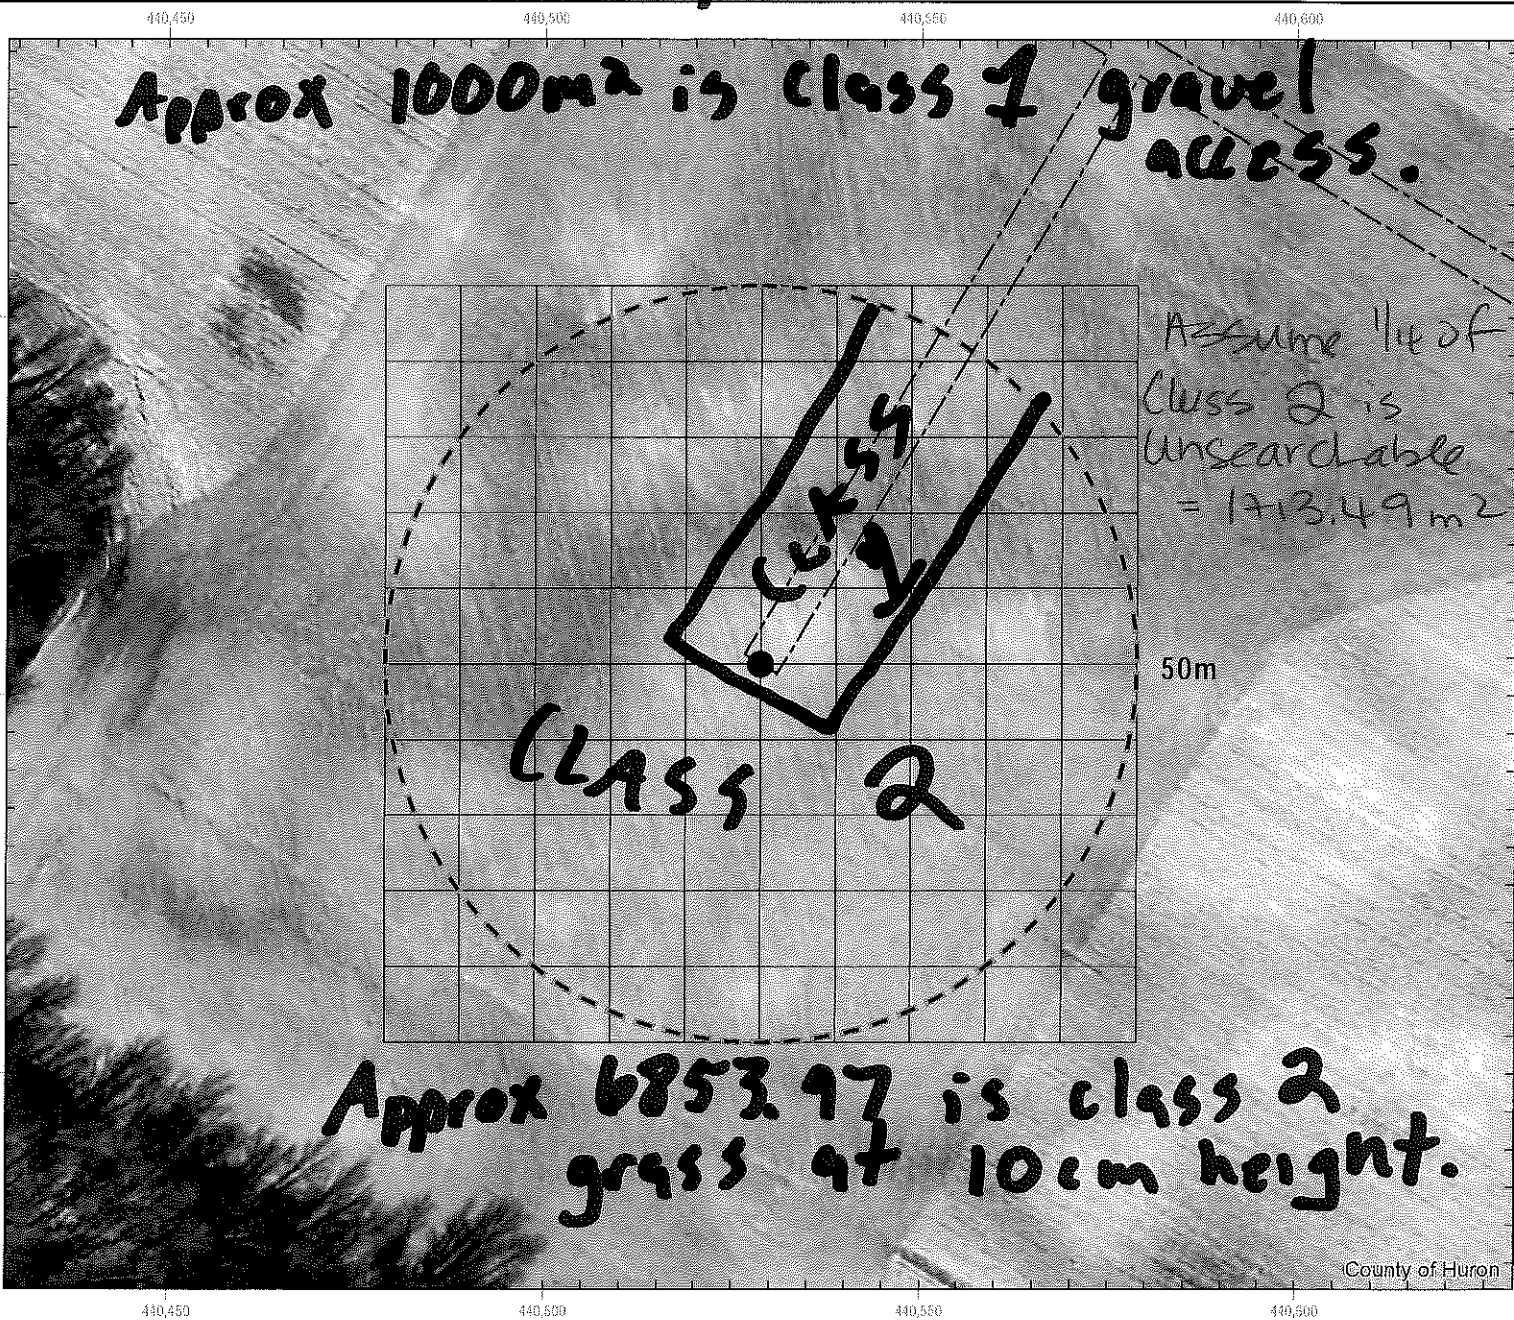 440,450 440,500 440,550 440,600
Approx 1000m² is Class 1 gravel
access.
Assume 1/4 of
Class 2 is
Unsearchable
= 1713.49 m2
50m
CLASS 2
Approx 6853.97 is class 2
grass at 10cm height.
County of Huron
440,450 440,500 440,550 440,600